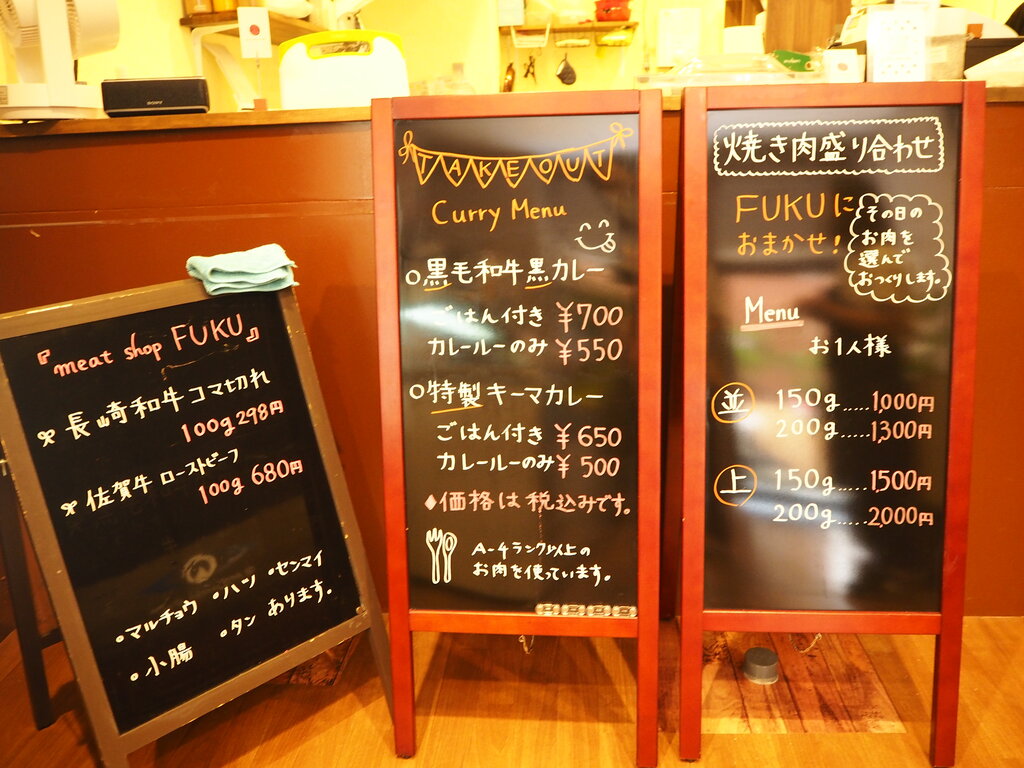 SONY
『meat shop FUKU』
長崎和牛コマ切れ
100g 298円
佐賀牛 ローストビーフ
100g 680円
・マルチョウ ・ハツ ・センマイ
・小腸 ・タン あります。
TAKEOUT
Curry Menu
○黒毛和牛黒カレー
ごはん付き ¥700
カレールーのみ ¥550
○特製キーマカレー
ごはん付き ¥650
カレールーのみ ¥500
♦価格は税込みです。
A-4ランク以上の
お肉を使っています。
焼き肉盛り合わせ
FUKUに
おまかせ!
その日の
お肉を
選んで
おつくりします。
Menu
お1人様
並 150g.....1,000円
200g.....1,300円
上 150g.....1,500円
200g.....2,000円